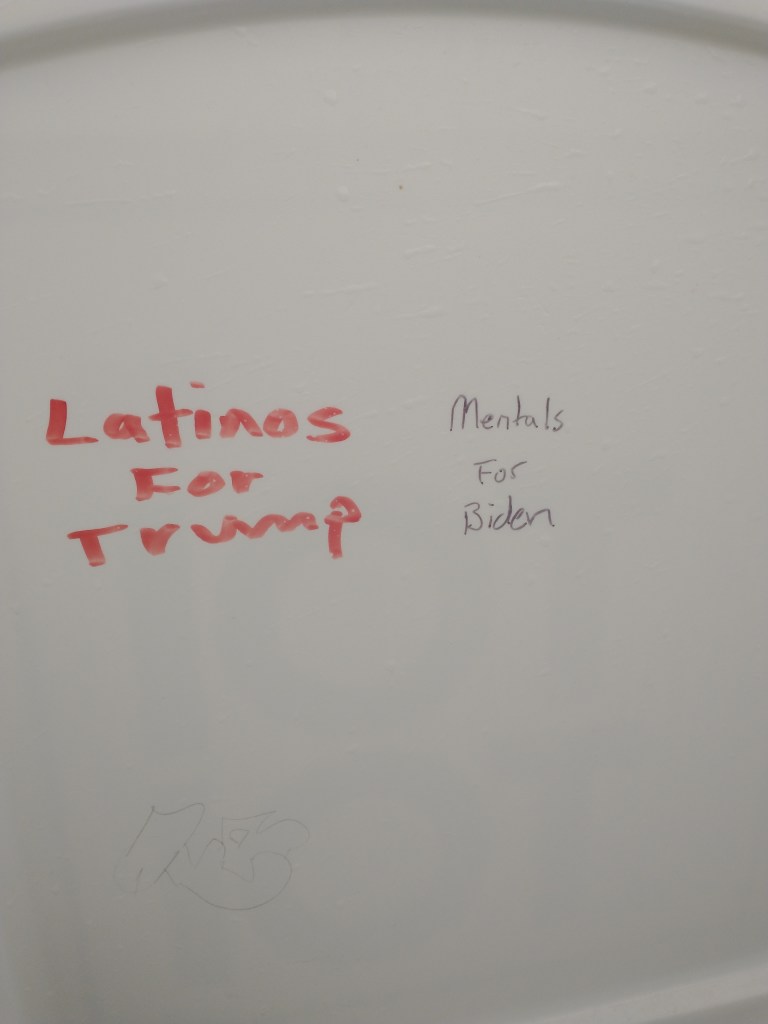 Latinos
For
Trump
Mentals
For
Biden